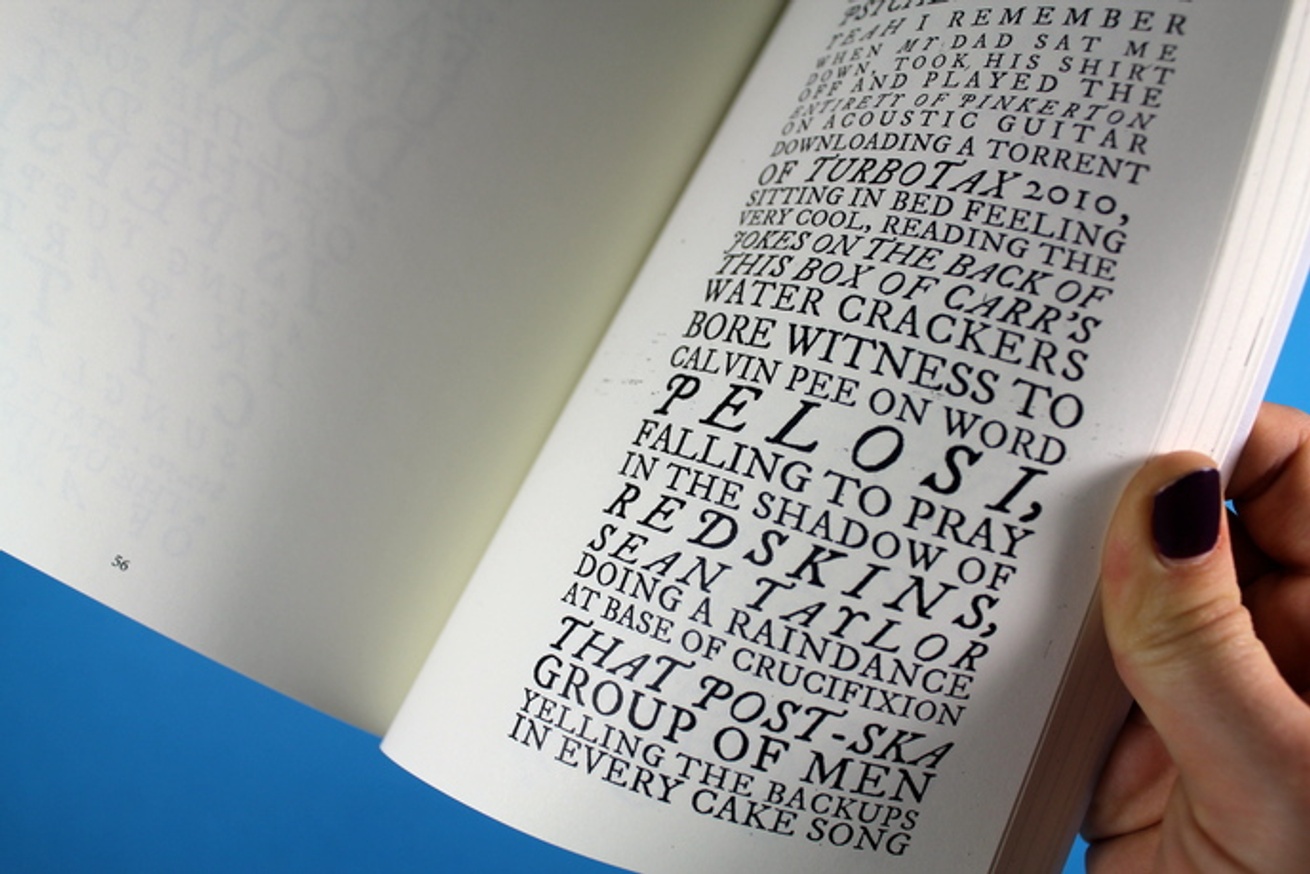 YEAH I REMEMBER
WHEN MY DAD SAT ME
DOWN, TOOK HIS SHIRT
OFF AND PLAYED THE
ENTIRETY OF PINKERTON
ON ACOUSTIC GUITAR
DOWNLOADING A TORRENT
OF TURBOTAX 2010,
SITTING IN BED FEELING
VERY COOL, READING THE
JOKES ON THE BACK OF
THIS BOX OF CARR'S
WATER CRACKERS
BORE WITNESS TO
CALVIN PEE ON WORD
PELOSI,
FALLING TO PRAY
IN THE SHADOW OF
REDSKINS,
SEAN TAYLOR
DOING A RAINDANCE
AT BASE OF CRUCIFIXION
THAT POST-SKA
GROUP OF MEN
YELLING THE BACKUPS
IN EVERY CAKE SONG
56